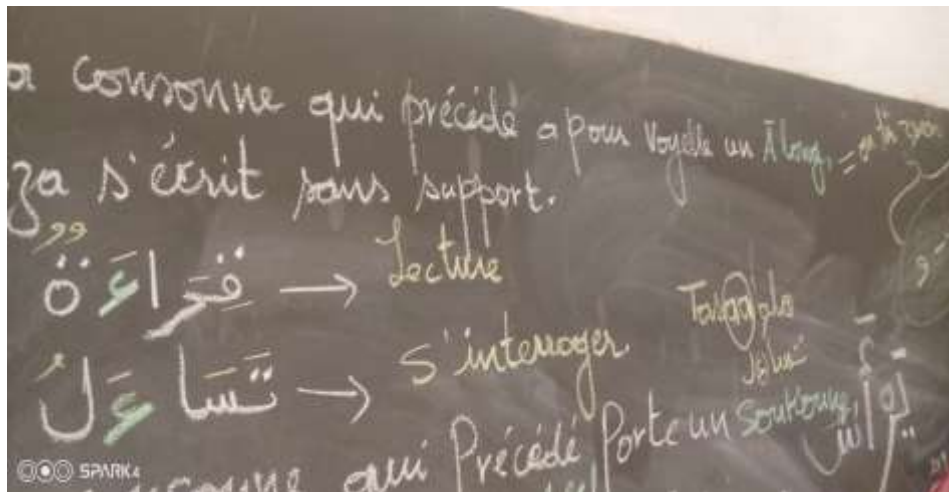 a consonne qui précédé a pour voyelle un Ā long,
za s'écrit sans support.
قِرَاءَةٌ → Lecture
تَسَاءَلُ → s'interroger.
Tasaa
consonne qui Précédé Porte un Soukoune,
SPARK 4